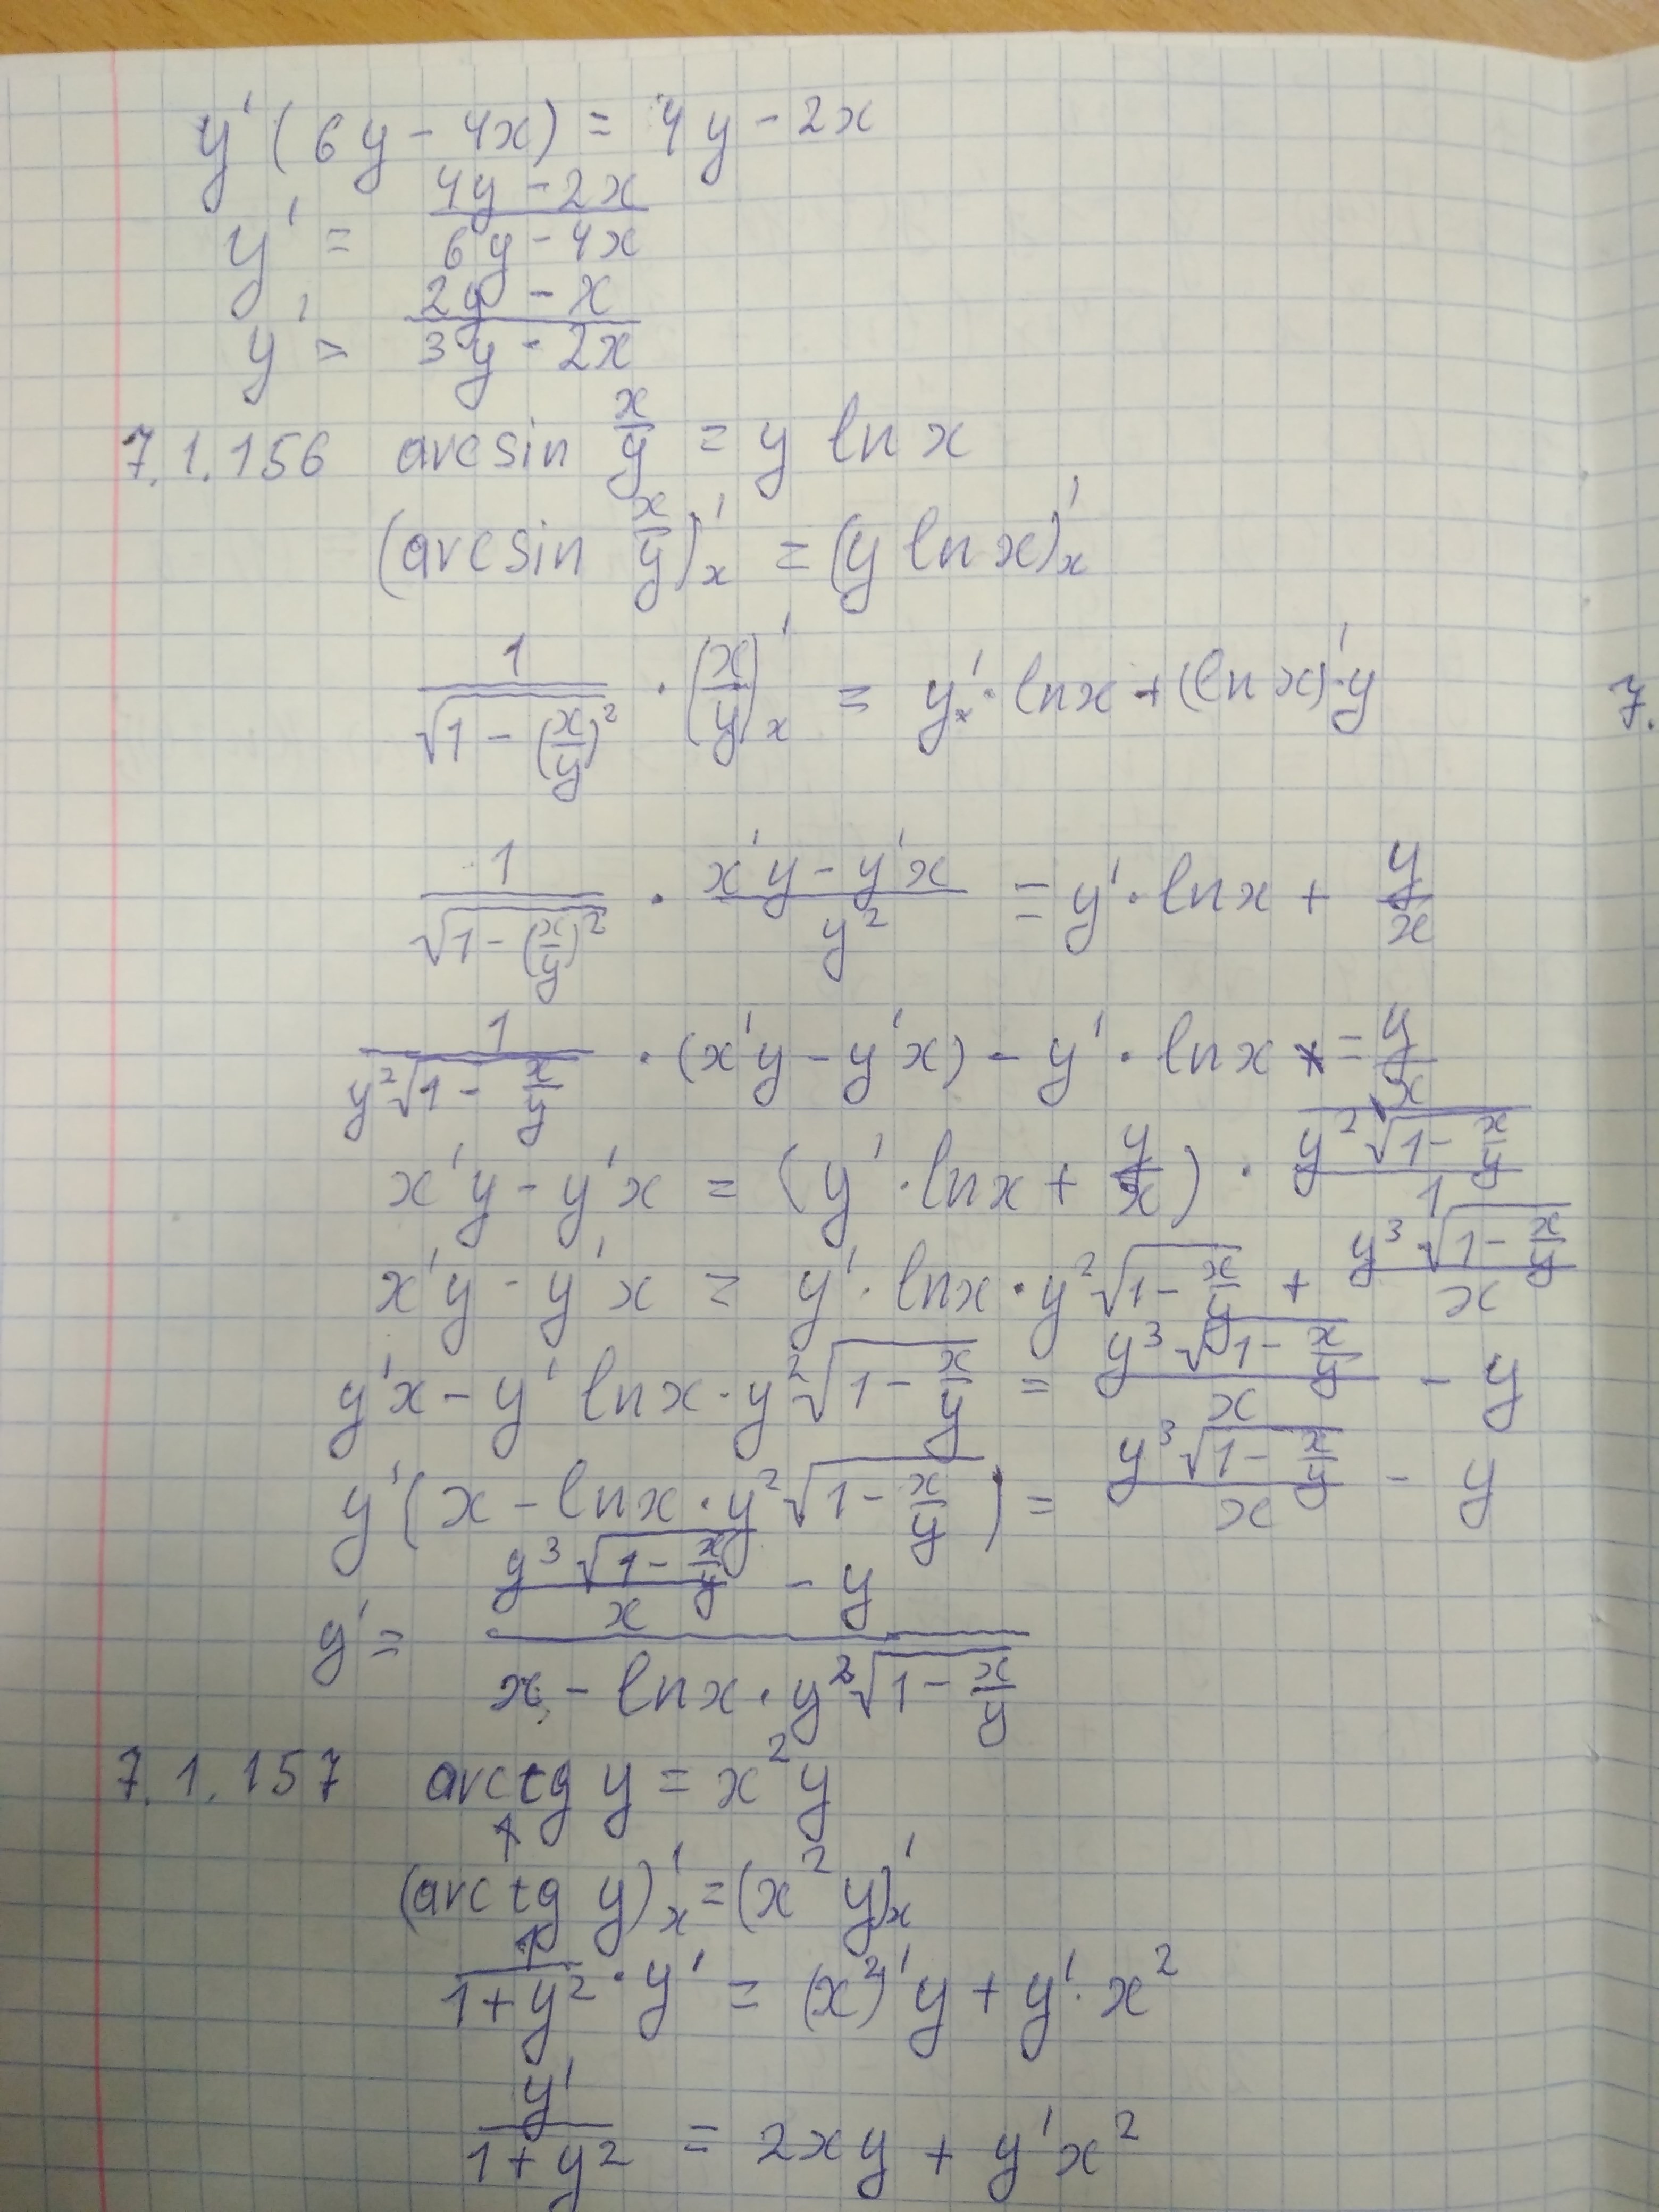 y'(6y - 4x) = 4y - 2x
y' = (4y - 2x)/(6y - 4x)
y' = (2y - x)/(3y - 2x)
7.1.156 arcsin x/y = y ln x
(arcsin x/y)'ₓ = (y ln x)'ₓ
1/√(1 - (x/y)²) · (x/y)'ₓ = y'ₓ · ln x + (ln x)' · y
1/√(1 - (x/y)²) · (x'y - y'x)/y² = y' · ln x + y/x
1/(y²√(1 - x/y)) · (x'y - y'x) - y' · ln x = y/x
x'y - y'x = (y' · ln x + y/x) · y²√(1 - x/y)/1
x'y - y'x = y' · ln x · y²√(1 - x/y) + y³√(1 - x/y)/x
y'x - y' ln x · y²√(1 - x/y) = y³√(1 - x/y)/x - y
y'(x - ln x · y²√(1 - x/y)) = y³√(1 - x/y)/x - y
y' = (y³√(1 - x/y)/x - y)/(x - ln x · y²√(1 - x/y))
7.1.157 arctg y = x²y
(arctg y)'ₓ = (x² y)'ₓ
1/(1 + y²) · y' = (x²)'y + y' · x²
y'/(1 + y²) = 2xy + y'x²
7.